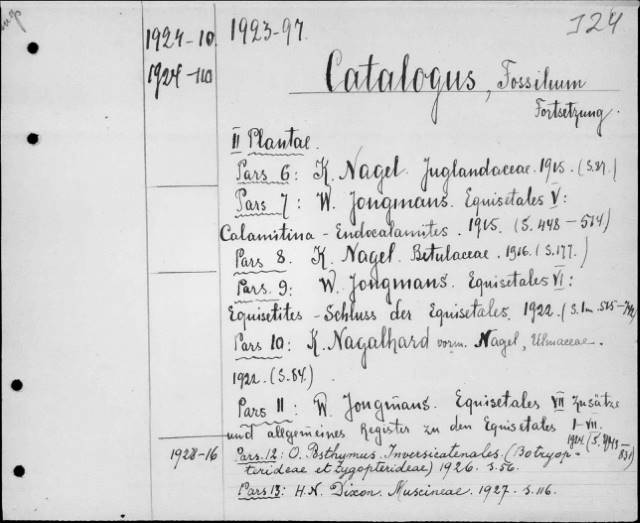 1924-10. 1923-97. J24
1924-110
Catalogus, Fossilium
Fortsetzung.
II Plantae.
Pars 6: K. Nagel. Juglandaceae. 1915. (S.87.)
Pars 7: W. Jongmans. Equisetales V:
Calamitina - Endocalamites. 1915. (S. 448-514)
Pars 8. K. Nagel. Betulaceae. 1916. (S.177.)
Pars 9: W. Jongmans. Equisetales VI:
Equisetites - Schluss der Equisetales. 1922. (S.
Pars 10: K. Nagalhard vorm. Nagel, Ulmaceae.
1922. (S.84.)
Pars 11: W. Jongmans. Equisetales VII Zusätze
und allgemeines Register zu den Equisetales I-VII.
1924. (S.
1928-16 Pars.12: O. Posthymus. Inversicatenales. (Botryop-
terideae et Zygopterideae) 1926. S.56.
Pars 13: H.N. Dixon. Muscineae. 1927. S.116.